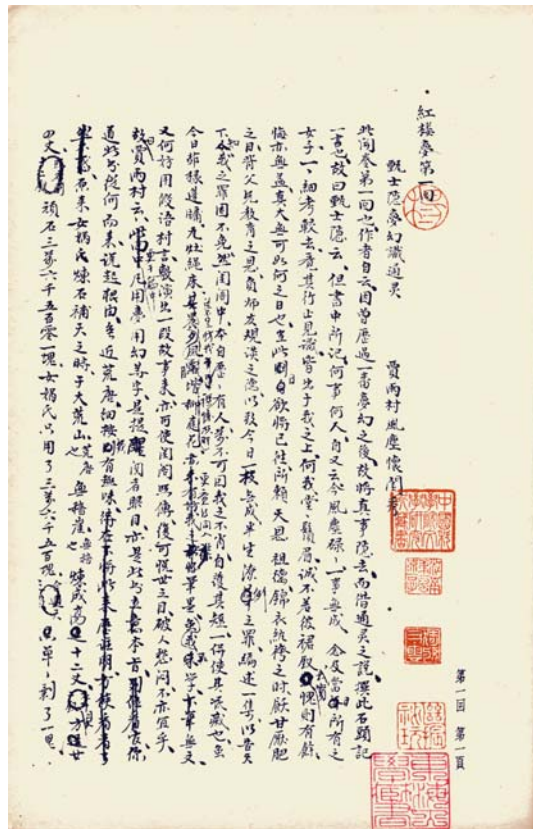 紅樓夢第一回
甄士隱夢幻識通灵 賈雨村風塵懷閨秀
此開卷第一回也作者自云因曾歷過一番夢幻之後故將真事隱去而借通灵之說撰此石頭記
一書也故曰甄士隱云云但書中所記何事何人自又云今風塵碌碌一事無成念及當日所有之
女子一一細考較去覺其行止見識皆出于我之上何我堂堂鬚眉誠不若彼裙釵實愧則有餘
悔亦無益真大無可如何之日也當此則自欲將已徃所賴天恩祖德錦衣紈袴之時飫甘饜肥
之日背父兄教育之恩負師友規談之德以致今日一技無成半生潦倒之罪編述一集以告天
下知我之罪固不免然閨閣中本自歷歷有人萬不可因我之不肖自護其短一併使其泯滅也雖
今日茅椽蓬牖瓦灶繩床其晨夕風露堦柳庭花亦未有我筆墨雖我未學下筆無文
又何妨用假語村言敷演出一段故事來亦可使閨閣照傳復可悅世之目破人愁悶不亦宜乎
故曰賈雨村云云此回中凡用夢用幻等字是提醒閱者眼目亦是此書立意本旨列位看官你
道此書從何而來說起根由雖近荒唐細按則有趣味待在下將此來歷註明方使看者了
然不惑原來女媧氏煉石補天之時于大荒山荒唐也無稽崖無稽也煉成高十二丈方廿
四丈頑石三萬六千五百零一塊女媧氏只用了三萬六千五百塊單單剩了一塊
第一回 第一頁